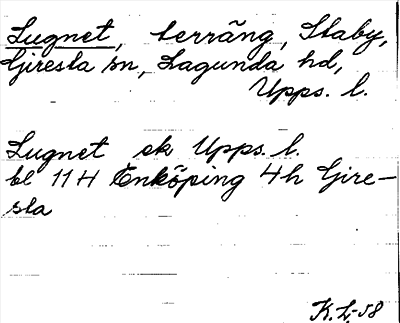 Lugnet, terräng, Staby,
Giresta sn, Lagunda hd,
Upps. l.
Lugnet ek Upps. l.
bl 11H Enköping 4h Gire-
sta
K.L-58